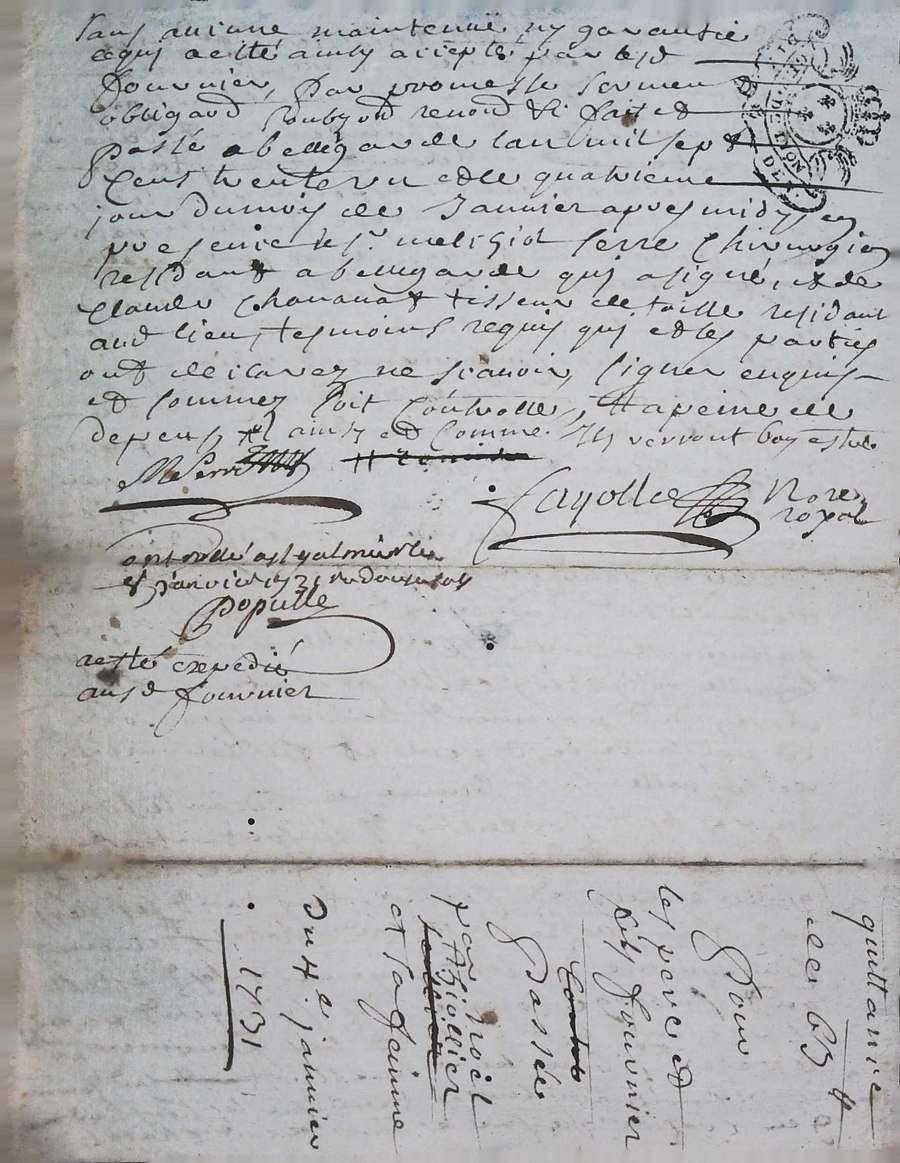 sans aucune maintenüe ny garantie
ce qui a esté ainsy accepté par led
fournier, par promesse serment
obligaõn soubmõn renõn &c fait et
passé a bellegarde lan mil sept
cens trente un et le quatrieme
jour du mois de Janvier apres midy en
presence de sr. serre chirurgien
residant a bellegarde qui a signé, et de
claude tisseur de toille residant
aud lieu, tesmoins requis qui et les parties
ont declarez ne scavoir signer enquis
et sommez soit controllé, a peine de
ainsy et comme Ils verront bon estre
fayolle Nore
royal
janvier 1731
Populle
a esté expedié
aus d fournier
quittance
de 63 ₶
Pour
les pere et
fils fournier
Passée
par noël
thiollier
et sa femme
du 4e janvier
1731